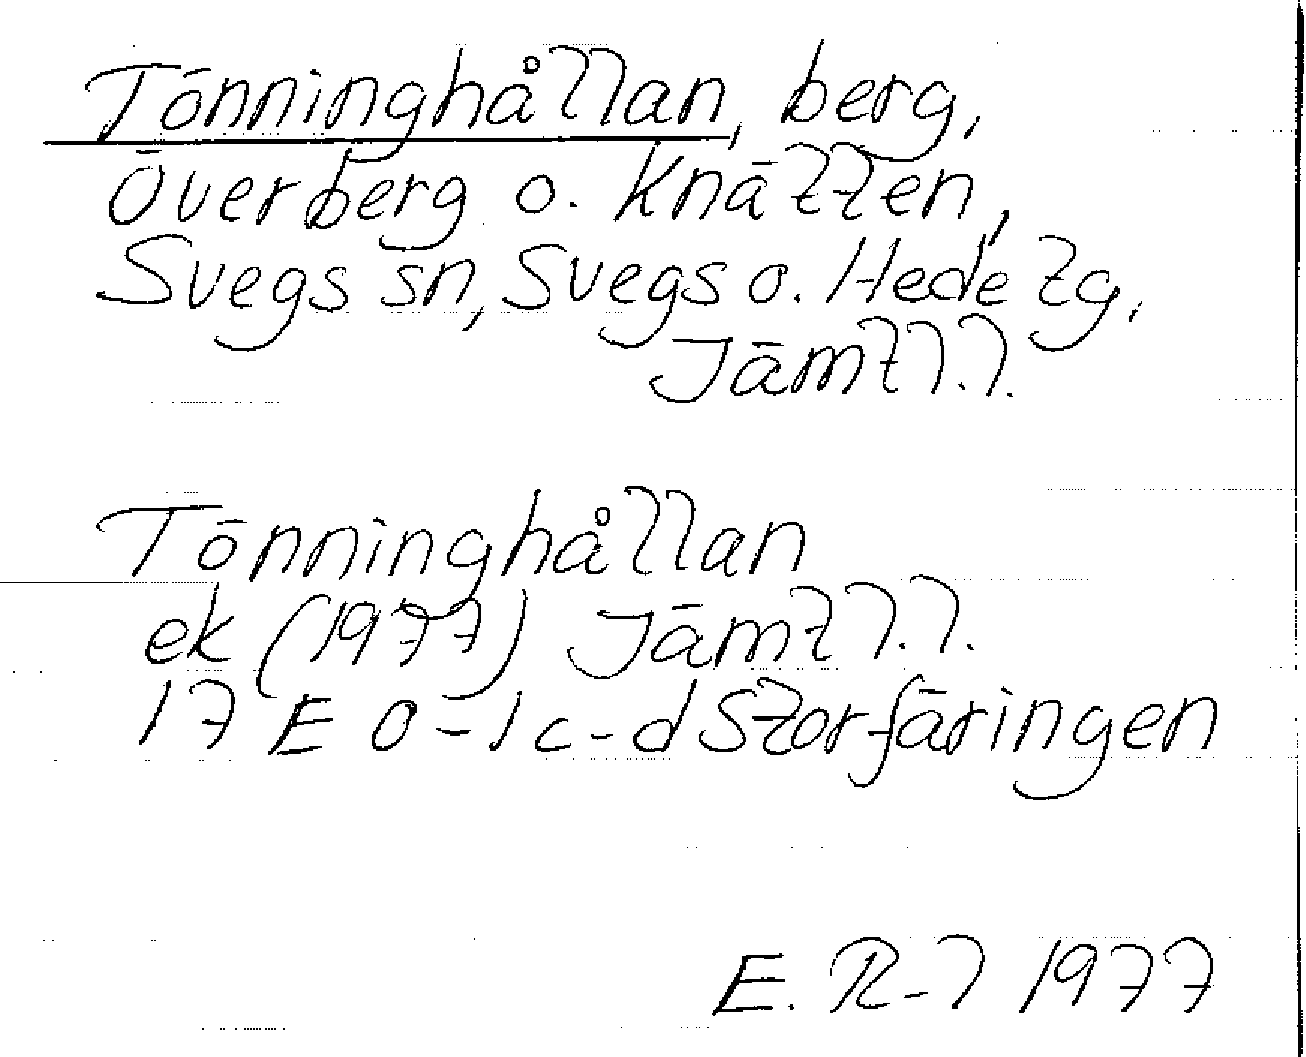 Tönninghållan, berg,
Överberg o. Knätten,
Svegs sn, Svegs o. Hede tg,
Jämtl.l.
Tönninghållan
ek (1977) Jämtl.l.
17 E 0-1 c-d Storfäringen
E. R-l 1977